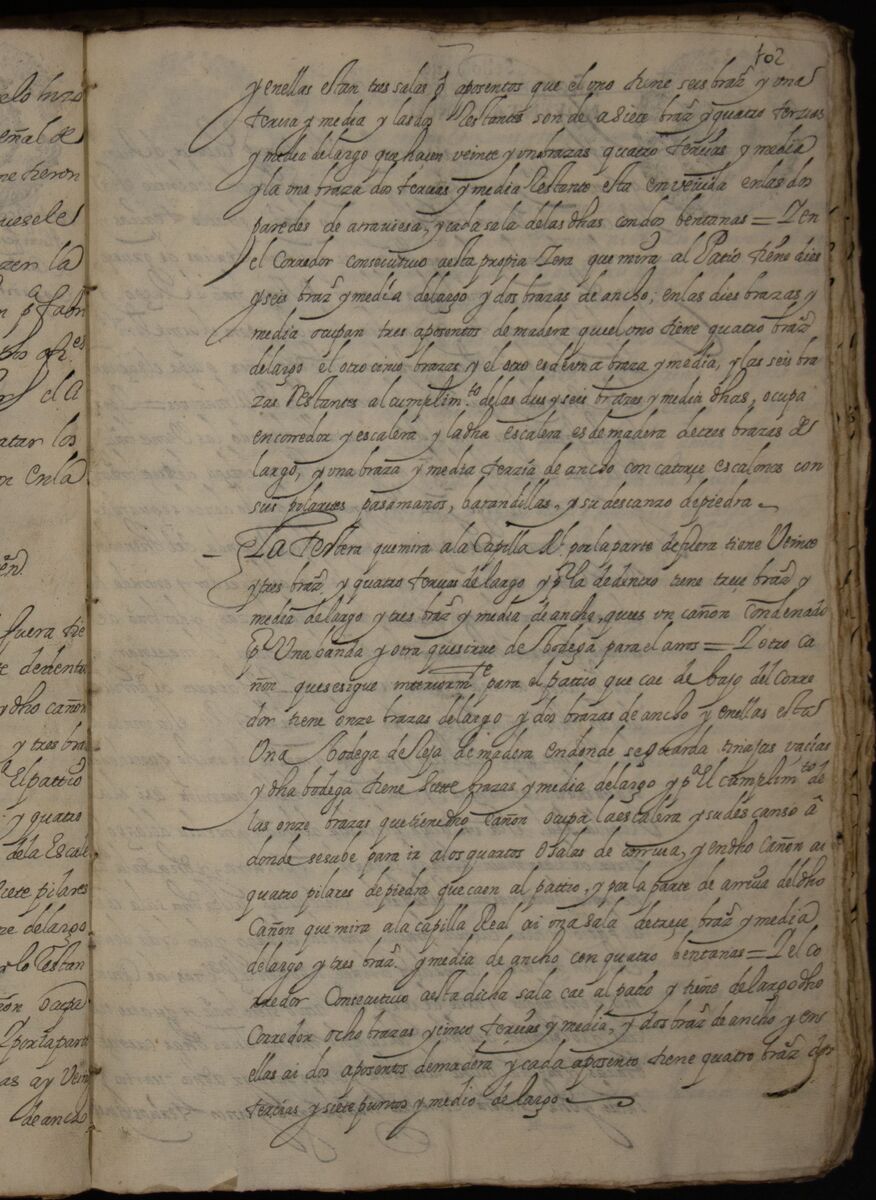 elo hizo
eñal de
ne hieron
uesele s
zer la
atar los
n En la
fuera tie
e dedentro
y dho cañon
y tres bra
El pattio
y quatro
de la Escale
siete pilares
de largo
r lo Restan
ñon ocupa
Y por la parte
as ay Vein
de ancho
102
y en ellas estan tres salas o aposentos que el uno tiene seis braz.s y una
tercia y media y las dos Restantes son de a siete braz.s y quatro tercias
y media de largo que hacen veinte y un brazas quatro tercias y media
y la una braza dos tercias y media Restante esta envevida en las dos
paredes de atraviesa, y cada sala de las dhas con dos bentanas = Y en
el Corredor consecutivo a esta propia Zera que mira al Patio tiene dies
y seis braz.s y media de largo y dos brazas de ancho; en las dies brazas y
media ocupan tres aposentos de madera que el uno tiene quatro braz.s
de largo el otro cinco brazas y el otro es de una braza y media, y las seis bra
zas Restantes al cumplim.to de las dies y seis brazas y media dhas, ocupa
en corredor y escalera y la dha escalera es de madera de tres brazas de
largo, y una braza y media terzia de ancho con catorçe escalones con
sus pilaretes pasamaños, barandillas, y su descanzo de piedra
La Testera que mira a la Capilla R.l por la parte de fuera tiene Veinte
y tres braz.s y quatro tercias de largo y p.r la de dentro tiene treçe braz.s y
media de largo y tres braz.s y media de ancho, que es un cañon Condenado
p.r Una banda y otra que sirve de Bodega para el arros = Y otro ca
ñon que se sigue interiorm.te para el pattio que cae de bajo del Corre
dor tiene onze brazas de largo y dos brazas de ancho y en ellas esta
Una Bodega de Reja de madera en donde se guarda tinajas vacias
y dha bodega tiene siete brazas y media de largo y p.a El cumplim.to de
las onze brazas que tiene dho Cañon ocupa la escalera y su descanso a
donde se sube para ir a los quartos o salas de arriva, y en dho Cañon ai
quatro pilares de piedra que caen al pattio, y por la parte de arriva del dho
Cañon que mira a la capilla Real ai una sala de treçe braz.s y media
de largo y tres braz.s y media de ancho con quatro bentanas = Y el co
rredor Consecutivo a esta dicha sala cae al patio y tiene de largo dho
Corredor ocho brazas y cinco tercias y media, y dos braz.s de ancho y en
ellas ai dos aposentos de madera y cada aposento tiene quatro braz.s dos
tercias y siete puntos y medio de largo